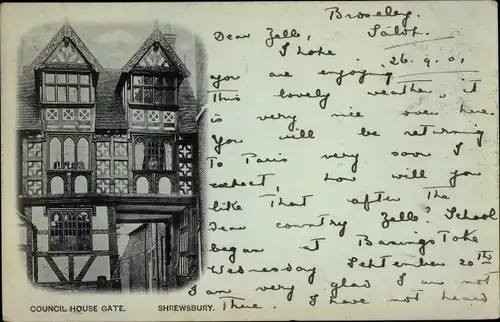 Broseley.
Salop.
26.9.01
Dear Zello,
I hope
you are enjoying
This lovely weather, it
is very nice over here.
you will be returning
To Paris very soon I
expect, how will you
like That after The
dear country Zello? School
began at Basingstoke
Wednesday September 20th
I am very glad I am not
There. I have not heard
COUNCIL HOUSE GATE. SHREWSBURY.